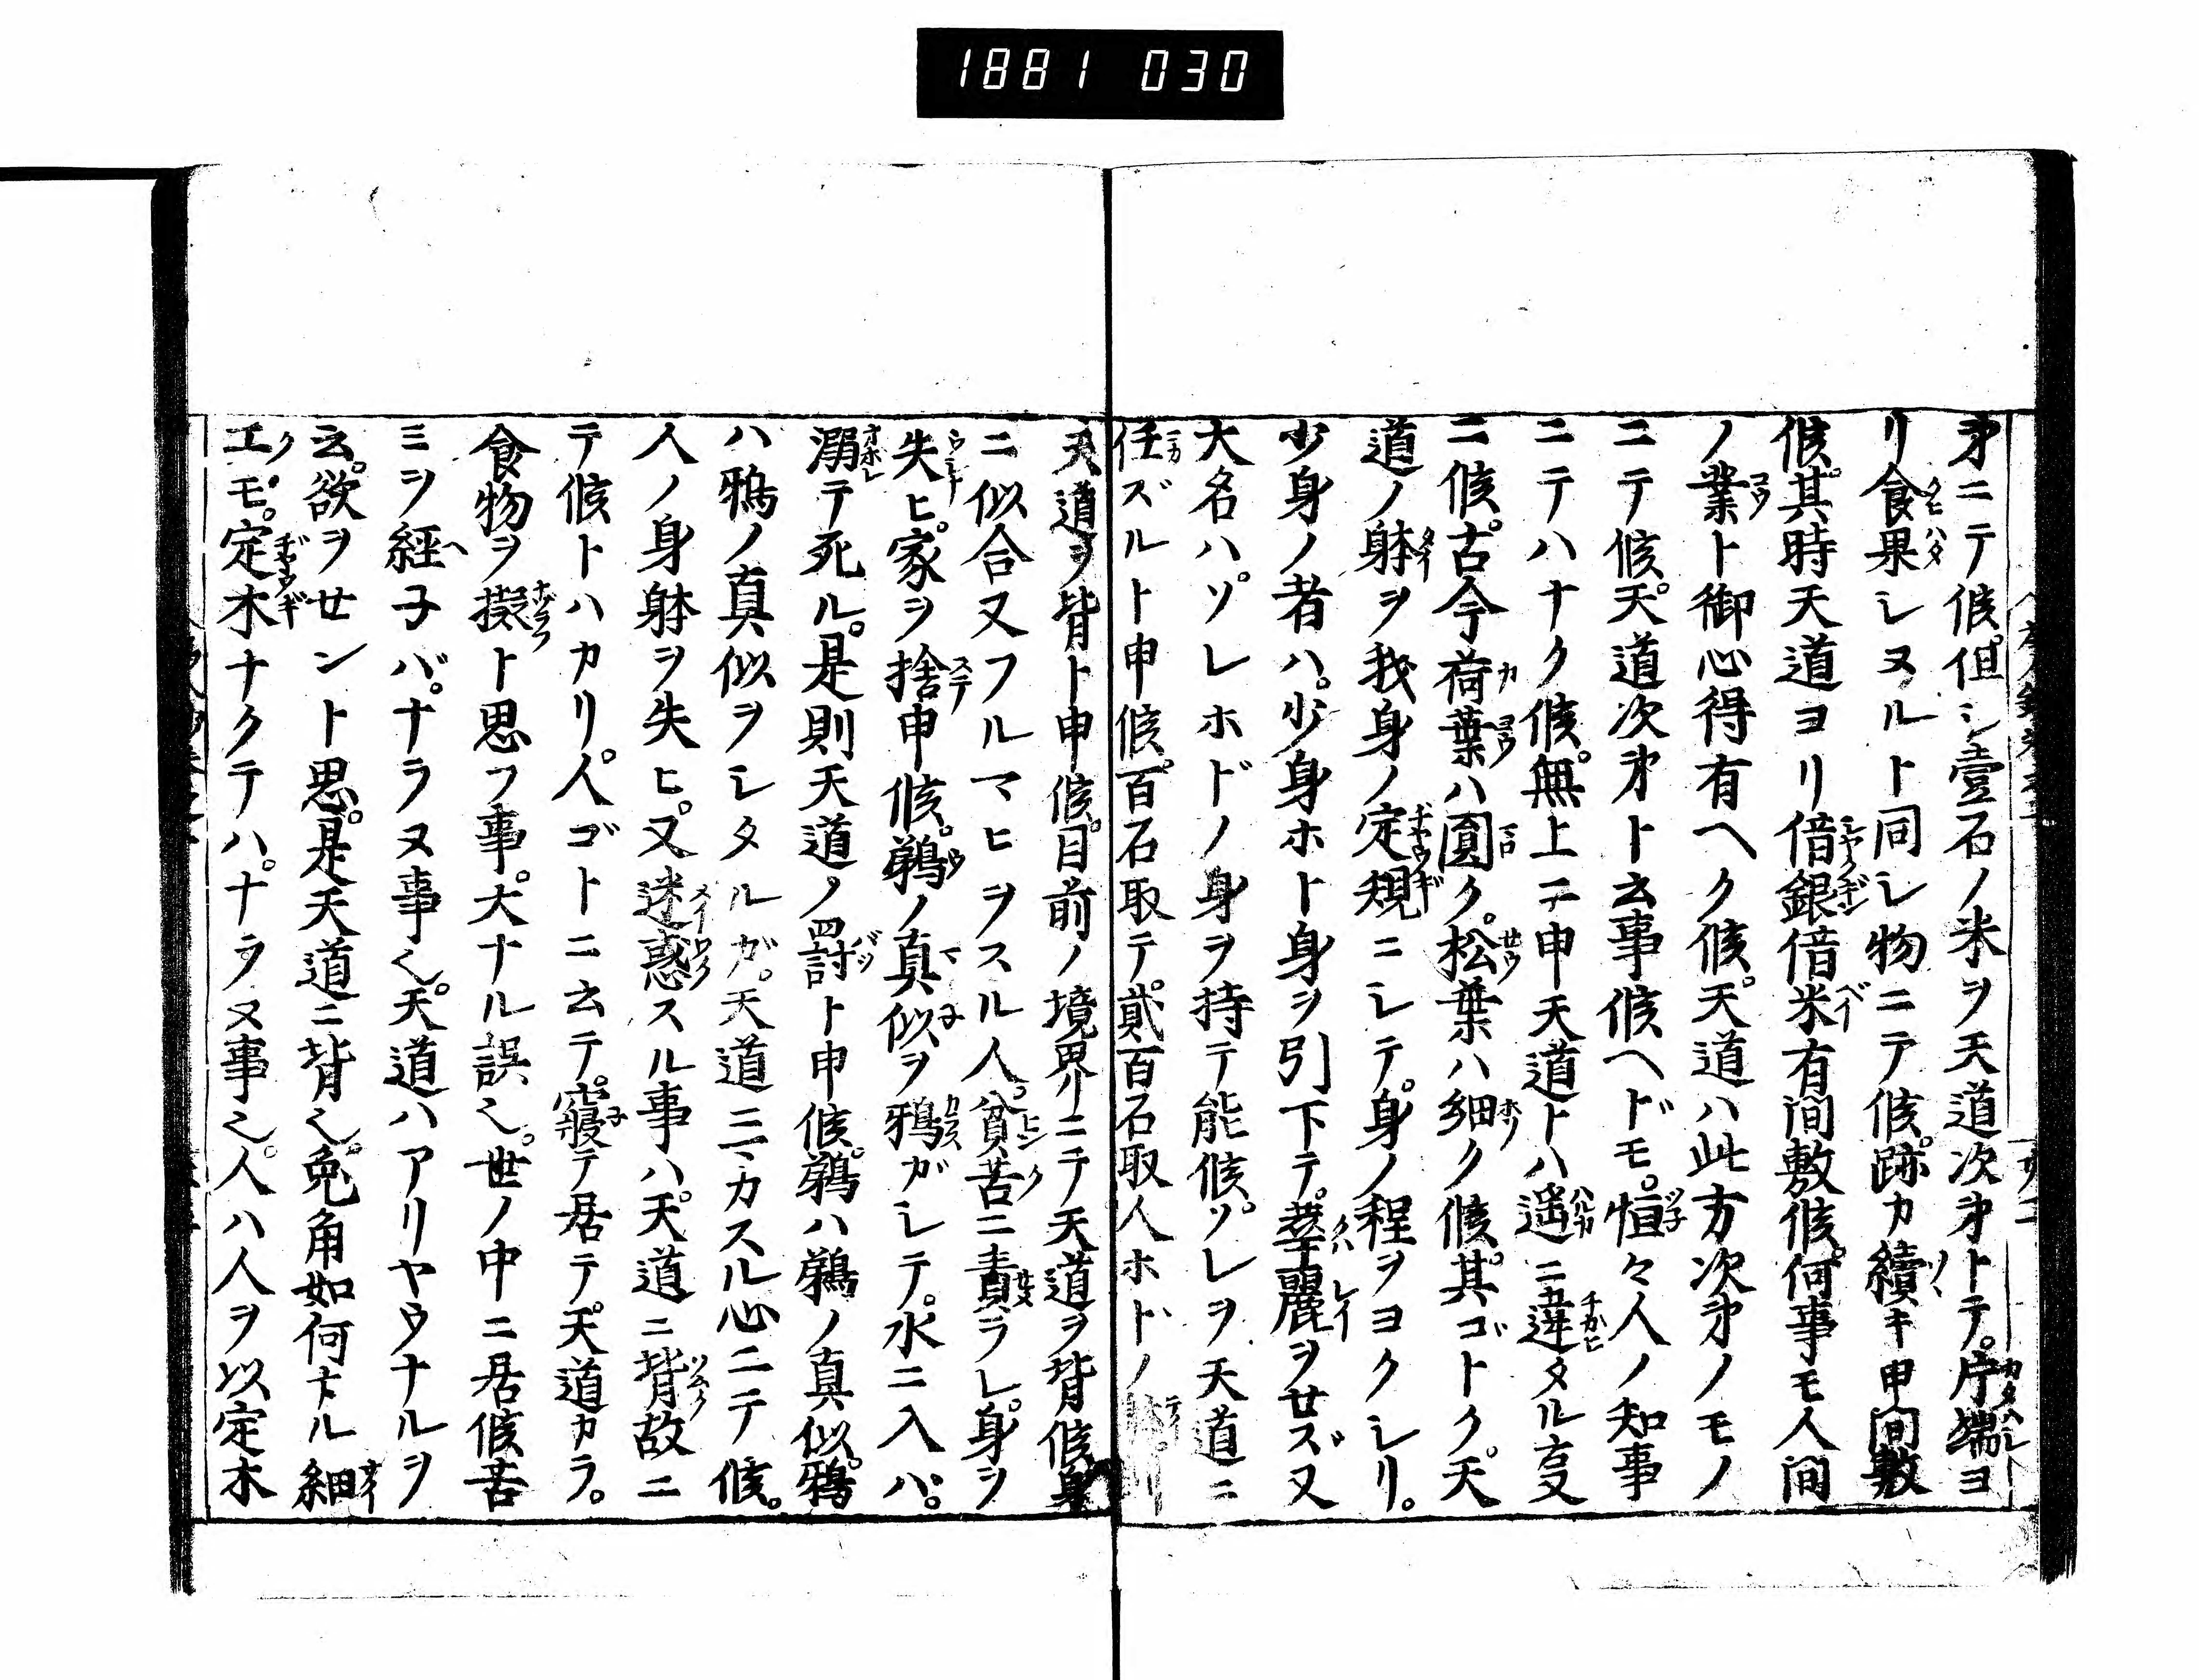 1881 030
㐧ニテ候。但シ壹石ノ米ヲ天道次㐧トテ。片端ヨ
リ食果シヌルト同シ物ニテ候。跡カ續キ申間敷
候。其時天道ヨリ借銀借米有間敷候。何事モ人間
ノ業ト御心得有ヘク候。天道ハ此方次㐧ノモノ
ニテ候。天道次㐧ト云事候ヘドモ。恒々人ノ知事
ニテハナク候。無上ニテ申天道トハ遥ニ違タル㕝
ニ候。古今荷葉ハ圓ク。松葉ハ細ク候。其ゴトク。天
道ノ躰ヲ我身ノ定規ニシテ。身ノ程ヲヨクシリ。
少身ノ者ハ。少身ホト身ヲ引下テ。華麗ヲせズ又
大名ハ。ソレホドノ身ヲ持テ能候。ソレヲ天道ニ
任ズルト申候。百石取テ。貳百石取人ホドノ
天道ヲ背ト申候。目前ノ境界ニテ天道ヲ背候。身
ニ似合又フルマヒヲスル人。貧苦ニ責ラレ。身ヲ
失ヒ。家ヲ捨申候。鵜ノ真似ヲ鴉ガシテ。水ニ入ハ。
溺テ死ル。是則天道ノ罸ト申候。鵜ハ鵜ノ真似。鴉
ハ鴉ノ真似ヲシタルガ。天道ニマカスル心ニテ候。
人ノ身躰ヲ失ヒ。又迷惑スル事ハ。天道ニ背故ニ
テ候トハカリ。人ゴトニ云テ。寢テ居テ。天道カラ。
食物ヲ擬ト思フ事。大ナル誤也。世ノ中ニ居候苦
ミヲ経子バ。ナラヌ事也。天道ハアリヤウナルヲ
云。欲ヲせント思。是天道ニ背也。兎角如何ナル細
工モ。定木ナクテハ。ナラヌ事也。人ハ人ヲ以定木